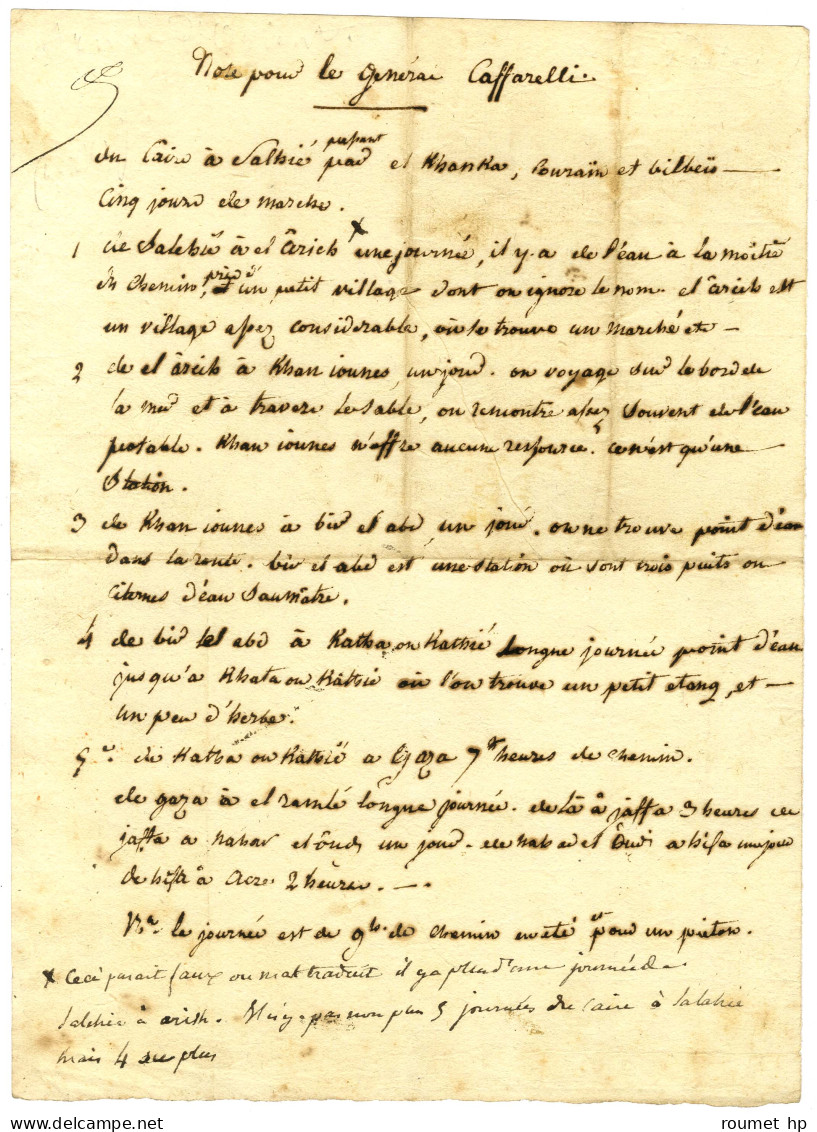 Note pour le général Caffarelli.
passant
du Caire à Salhié par el Khanka, Couraïn et bilbeis —
Cinq jours de marche.
1 de Salehié à el ârich x une journée, il y a de l'eau à la moitié
du chemin, près d'un petit village dont on ignore le nom. el ârich est
un village assez considerable, où se trouve un marché etc —
2 de el ârich à Khan iounes, un jour. on voyage sur le bord de
la mer et à travers le sable, on rencontre assez souvent de l'eau
potable. Khan iounes n'offre aucune ressource. ce n'est qu'une
Station.
3 de Khan iounes à bir el abd, un jour. on ne trouve point d'eau
dans la route. bir el abd est une station où sont trois puits ou
citernes d'eau Saumâtre.
4 de bir el abd à Katba ou Kathié Longue journée point d'eau
jusqu'a Khata ou Kathié où l'on trouve un petit etang, et —
un peu d'herbe.
5 de Katba ou Kathié a Gaza 7 heures de chemin.
de gaza à el ramlé longue journée. de là à jaffa 3 heures de
jaffa a nahar el ôudj un jour. de nahar el ôudj a hifa un jour
de hifa à Acre 2 heures. —
Na. le journée est de 9 h. de chemin en été pour un pieton.
x Ceci parait faux ou mal traduit il y a plus d'une journée de
Salehié à arish. Il n'y a pas non plus 5 journées du Caire à Salahié
mais 4 au plus
roumet hp